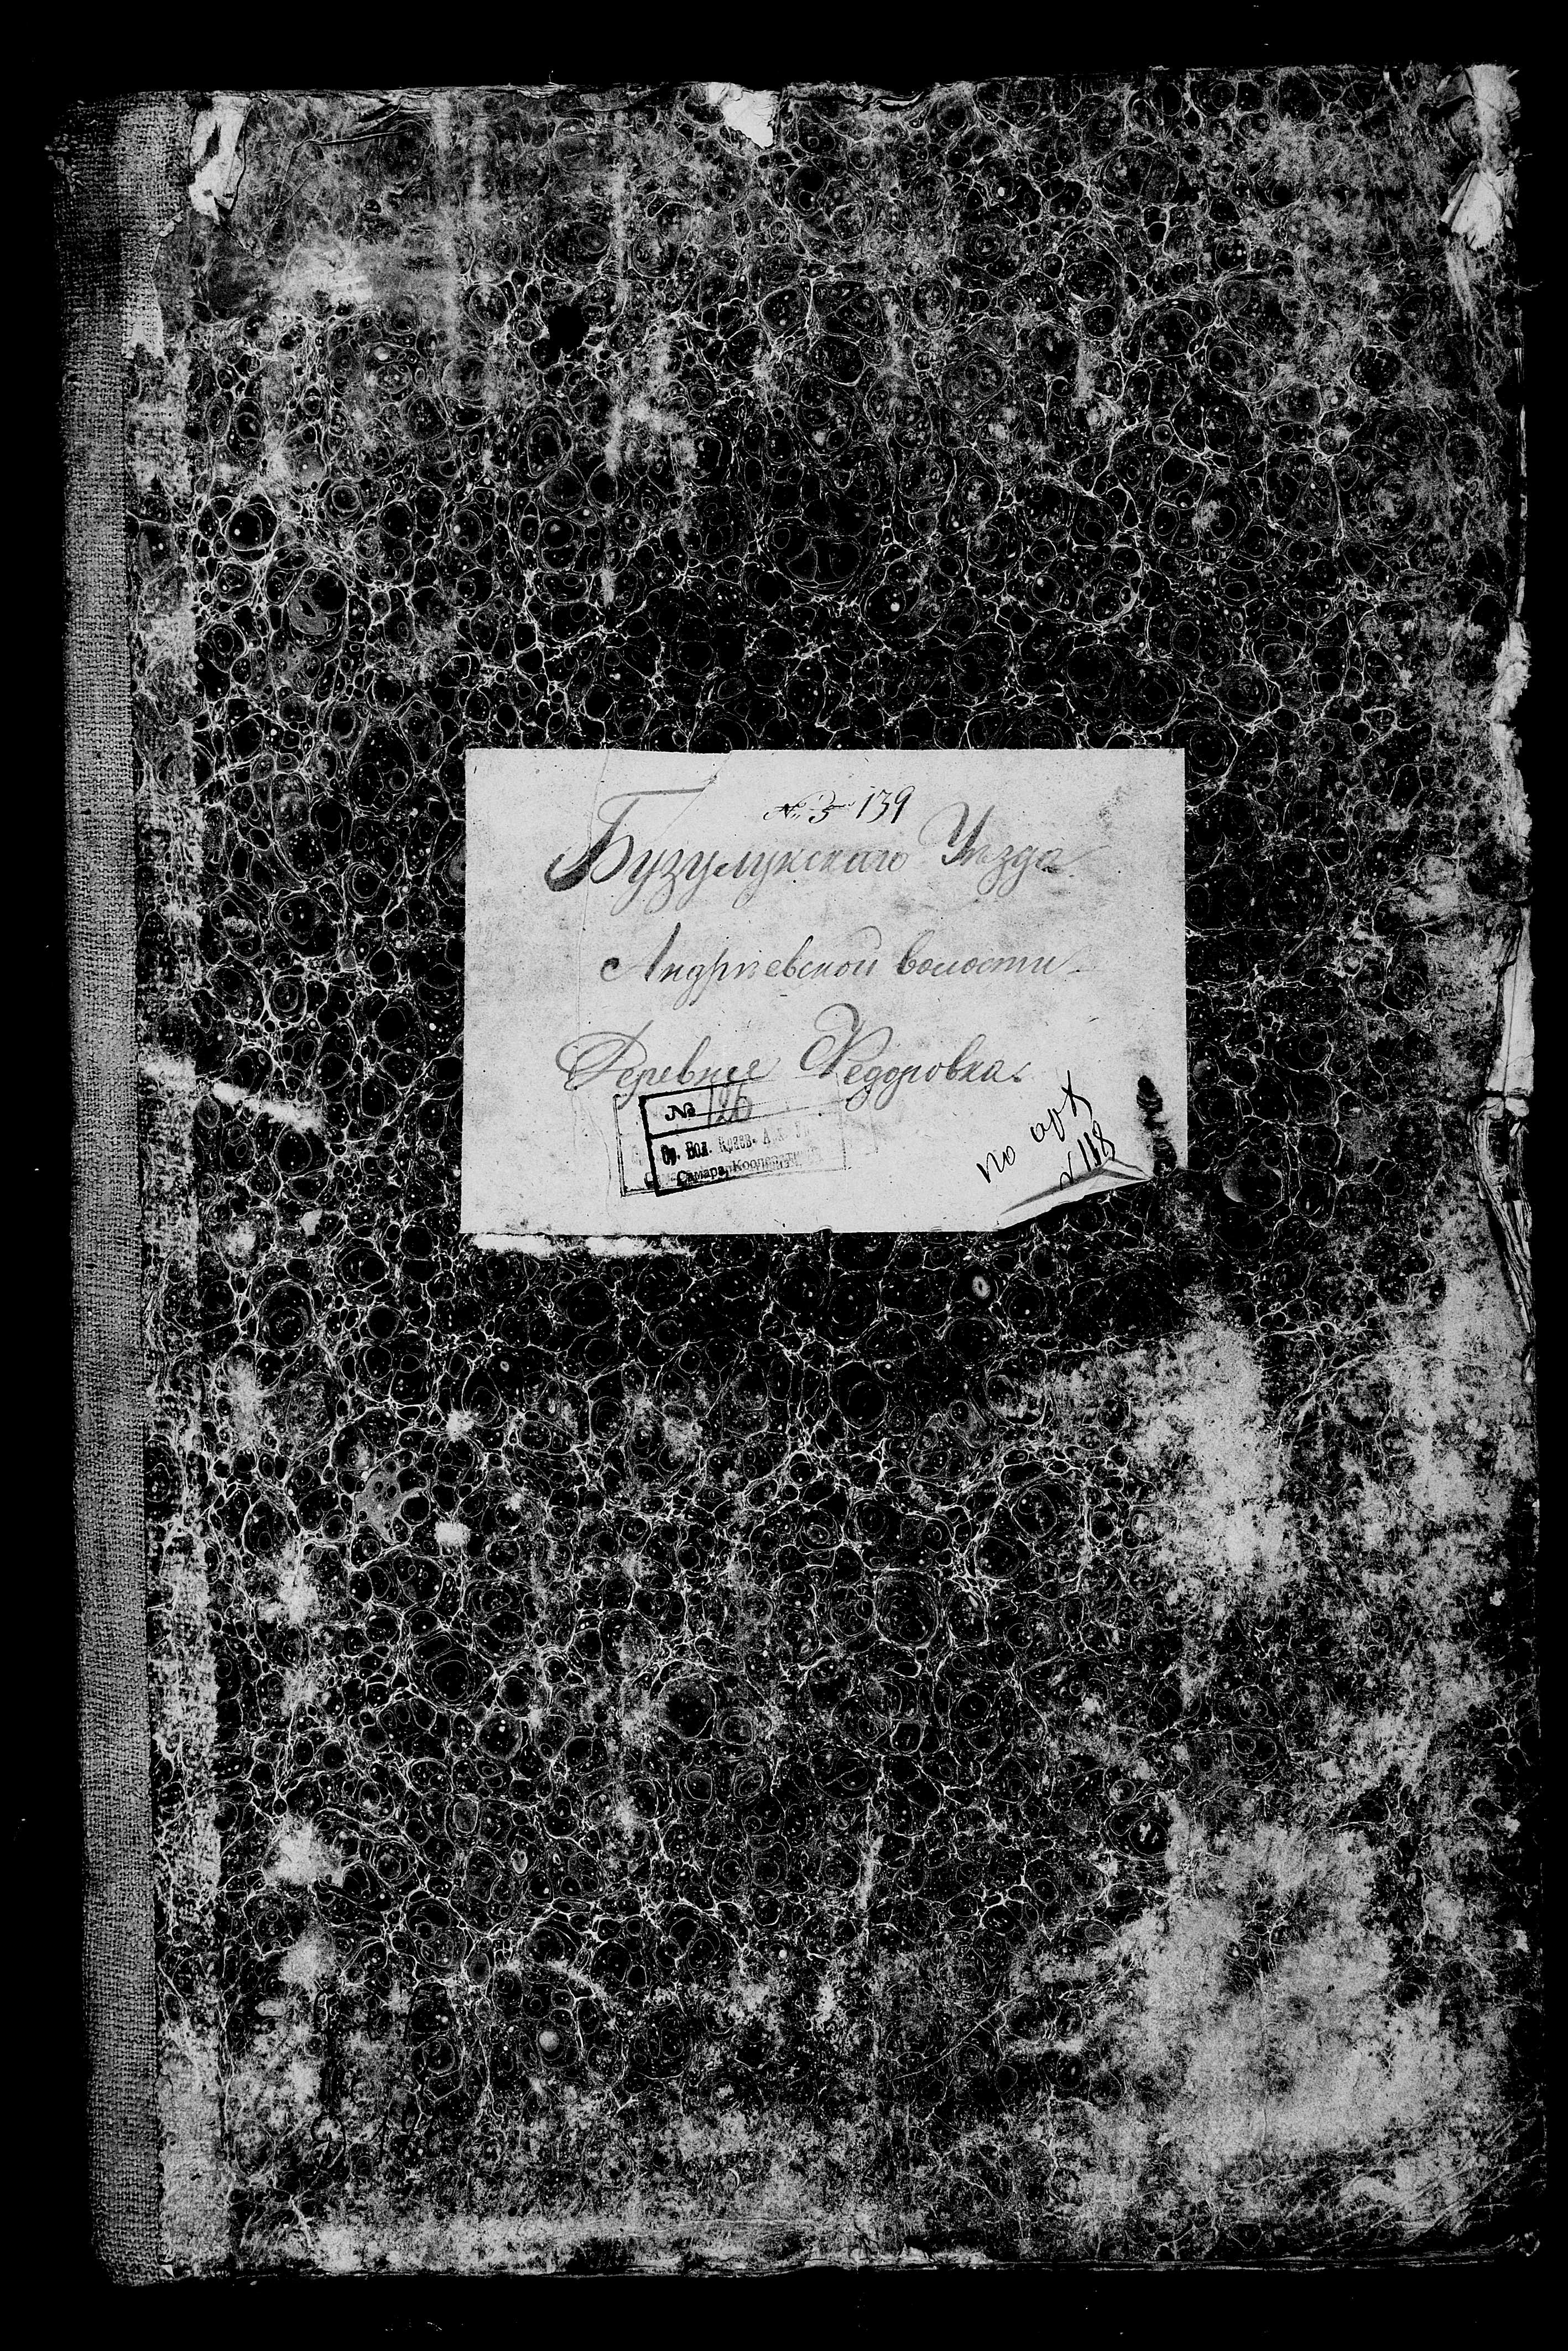 № 3 139
Бузулукскаго Уѣзда
Андріевской волости
Деревня Федоровка.
№ 126
Ср. Вол. Краев.
Самара, Кооперативная
по арх
№ 118